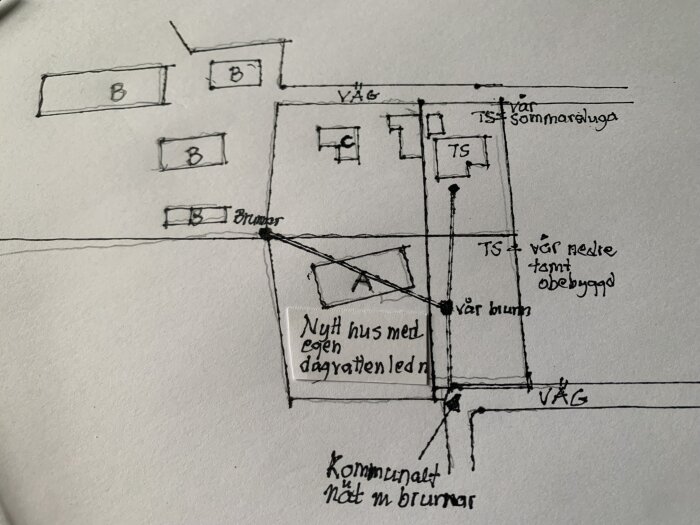 B
B
VÄG
TS = vår
sommarstuga
C
TS
B
B
Brunnar
TS = vår nedre
tomt
obebyggd
A
vår brunn
Nytt hus med
egen
dagvattenledn
VÄG
Kommunalt
nät m brunnar